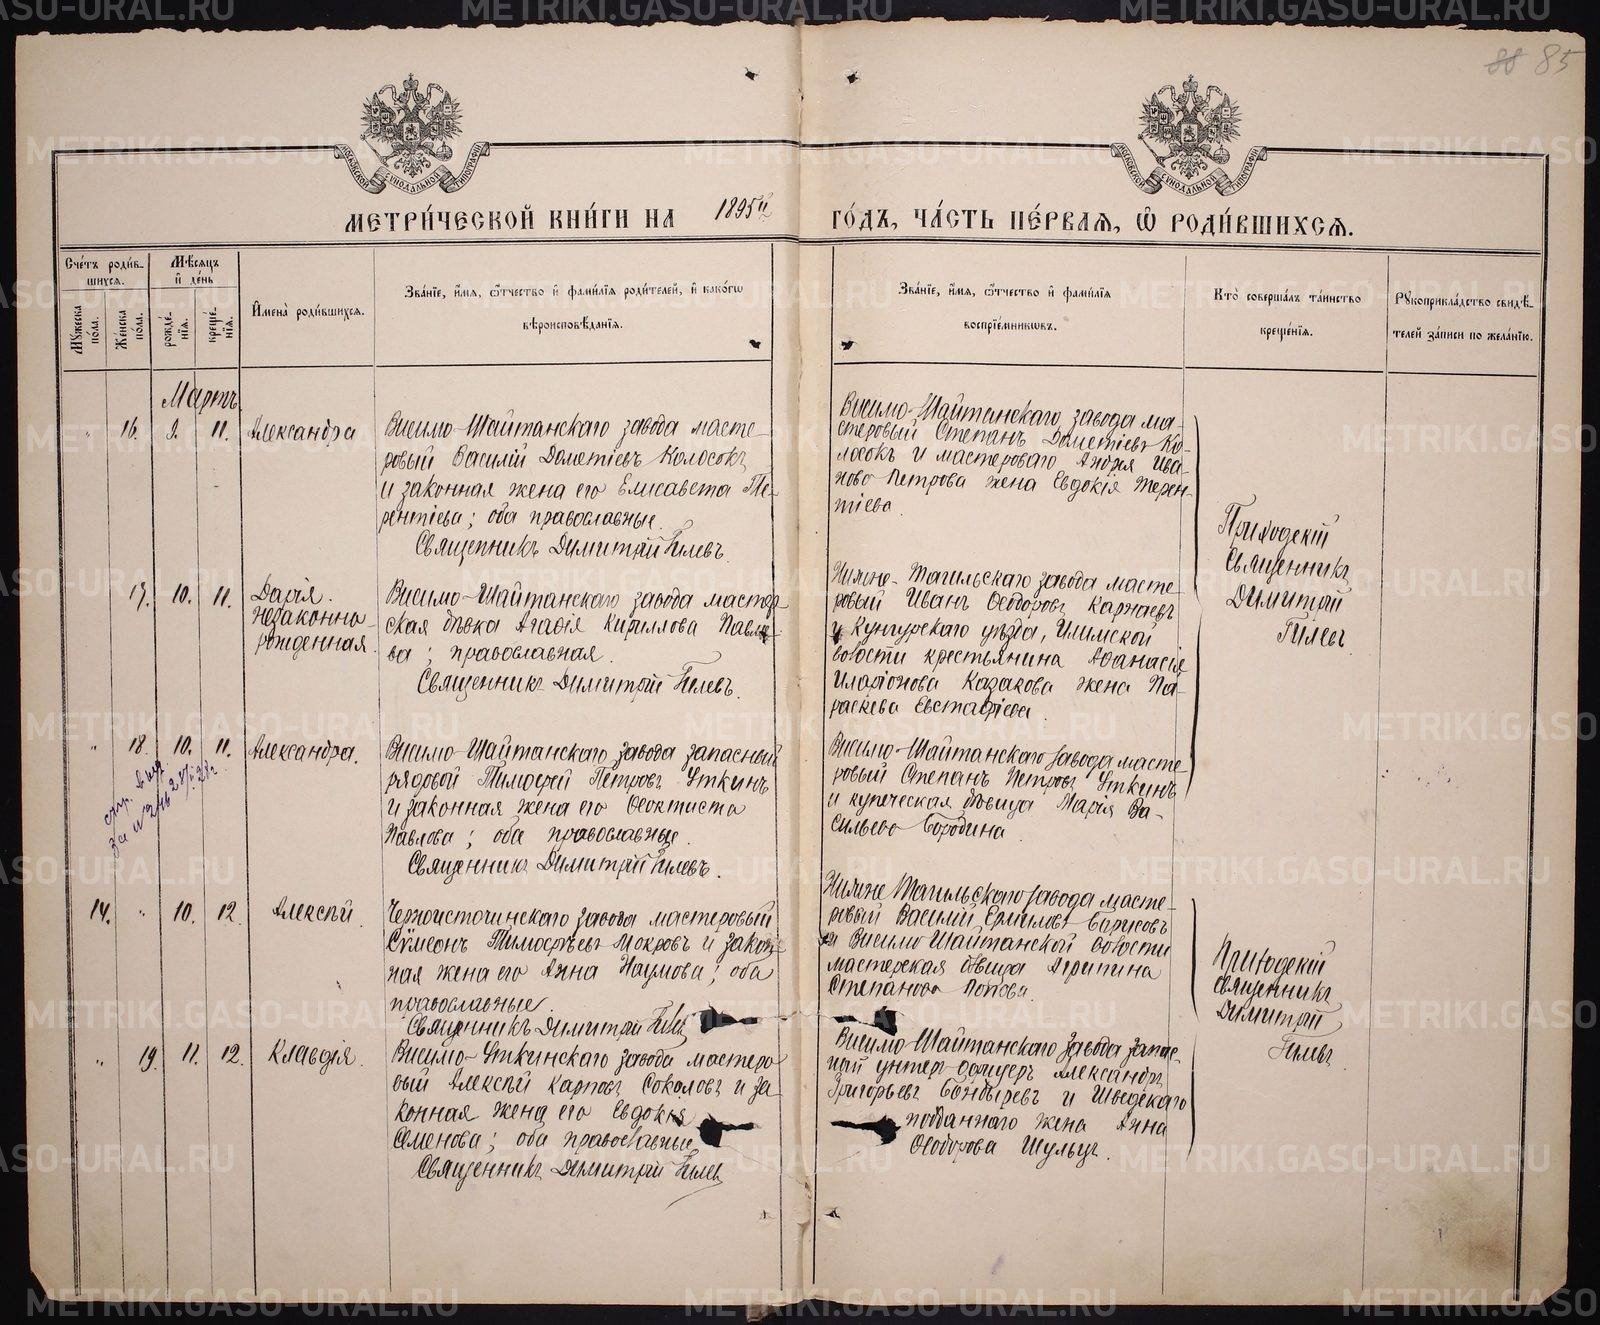 88 85
МОСКОВСКОЙ СѴНОДАЛЬНОЙ ТИПОГРАФІИ
МОСКОВСКОЙ СѴНОДАЛЬНОЙ ТИПОГРАФІИ
МЕТРИ́ЧЕСКОЙ КНИ́ГИ НА 1895й ГО́ДЪ, ЧА́СТЬ ПЕ́РВАѦ, Ѡ РОДИ́ВШИХСѦ.
Сче́тъ роди́в-
шихсѧ.
Мѣ́сѧцъ
и҆ де́нь
Мꙋ́жеска
по́ла.
Же́нска
по́ла.
рожде́-
нїѧ.
креще́-
нїѧ.
И҆мена̀ роди́вшихсѧ.
Зва́нїе, и҆́мѧ, ѻ҆́тчество и҆ фами́лїѧ роди́телей, и҆ како́гѡ
вѣроисповѣ́данїѧ.
Зва́нїе, и҆́мѧ, ѻ҆́тчество и҆ фами́лїѧ
воспрїе́мникѡвъ.
Кто̀ соверша́лъ та́инство
креще́нїѧ.
Рꙋкоприкла́дство свидѣ́-
телей за́писи по жела́нїю.
Мартъ
" 16. 9. 11. Александра
Висимо-Шайтанскаго завода масте-
ровый Василій Дометіевъ Колосокъ
и законная жена его Елисавета Те-
рентіева; оба православные.
Священникъ Димитрій Гилевъ.
Висимо-Шайтанскаго завода ма-
стеровый Степанъ Дометіевъ Ко-
лосокъ и мастероваго Андрея Ива-
ново Петрова жена Евдокія Терен-
тіева.
Приходскій
Священникъ
Димитрій
Гилевъ
17. 10. 11. Дарія.
незаконно
рожденная.
Висимо-Шайтанскаго завода мастер-
ская дѣвка Агафія Кириллова Павло-
ва; православная.
Священникъ Димитрій Гилевъ.
Нижне-Тагильскаго завода масте-
ровый Иванъ Ѳеодоровъ Карнаевъ
и Кунгурскаго уѣзда, Илимской
волости крестьянина Аѳанасія
Иларіонова Казакова жена Па-
раскева Евстафіева.
" 18. 10. 11. Александра.
Висимо-Шайтанскаго завода запасный
рядовой Тимофей Петровъ Уткинъ
и законная жена его Ѳеоктиста
Павлова; оба православные.
Священникъ Димитрій Гилевъ.
Висимо-Шайтанскаго завода масте-
ровый Степанъ Петровъ Уткинъ
и купеческая дѣвица Марія Ва-
сильева Бородина.
14. " 10. 12. Алексѣй.
Черноисточинскаго завода мастеровый
Сѵмеонъ Тимофѣевъ Мокровъ и закон-
ная жена его Анна Наумова; оба
православные.
Священникъ Димитрій Гилевъ
Нижне Тагильскаго завода масте-
ровый Василій Ермиловъ Борисовъ
и Висимо Шайтанской волости
мастерская дѣвица Агрипина
Степанова Попова.
Приходскій
священникъ
Димитрій
Гилевъ
" 19. 11. 12. Клавдія.
Висимо-Уткинскаго завода мастеро-
вый Алексѣй Карповъ Соколовъ и за-
конная жена его Евдокія
Семенова; оба православные.
Священникъ Димитрій Гилевъ
Висимо-Шайтанскаго завода запас-
ный унтеръ-офицеръ Александръ
Григорьевъ Бондыревъ и Шведскаго
подданнаго жена Анна
Ѳеодорова Шульцъ.
METRIKI.GASO-URAL.RU